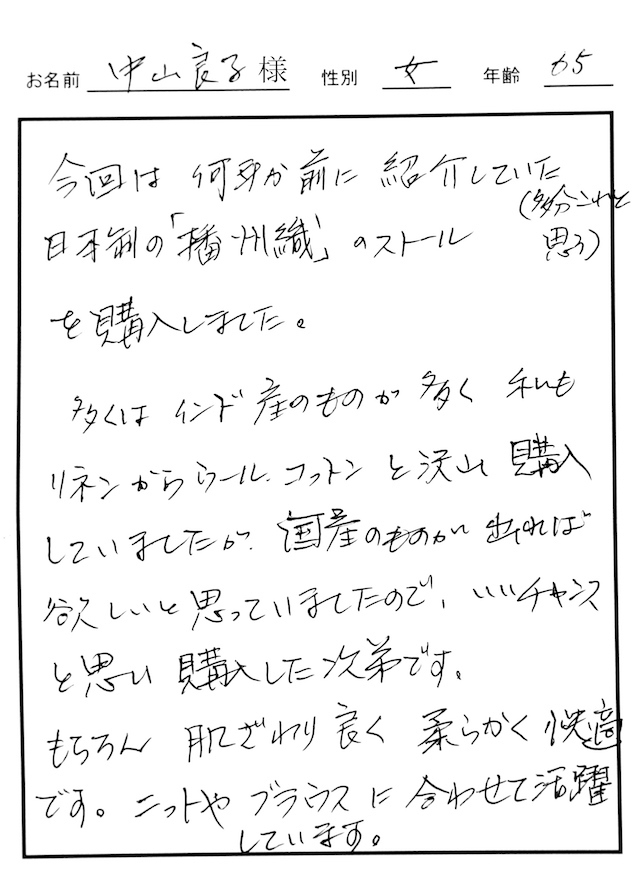 お名前 中山良子様 性別 女 年齢 65
今回は 何年か前に 紹介していた
(多分これと
日本製の「播州織」のストール 思う)
を購入しました。
多くは インド産のものが 多く 私も
リネンからウール、コットンと沢山 購入
していましたが、国産のものが 出れば
欲しいと思っていましたので、いいチャンス
と思い 購入した次第です。
もちろん 肌ざわり良く 柔らかく 快適
です。ニットや ブラウスに 合わせて活躍
しています。